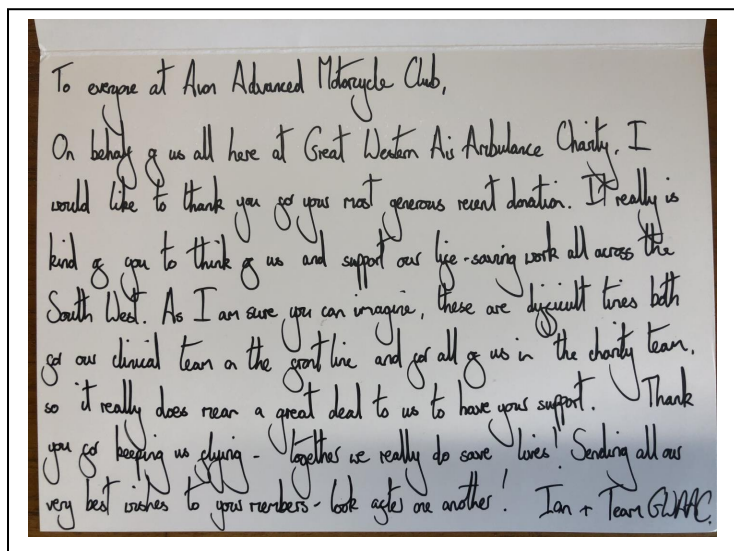 To everyone at Avon Advanced Motorcycle Club,
On behalf of us all here at Great Western Air Ambulance Charity, I
would like to thank you for your most generous recent donation. It really is
kind of you to think of us and support our life-saving work all across the
South West. As I am sure you can imagine, these are difficult times both
for our clinical team on the front line and for all of us in the charity team,
so it really does mean a great deal to us to have your support. Thank
you for keeping us flying - together we really do save lives! Sending all our
very best wishes to your members - look after one another! Ian + Team GWAAC.